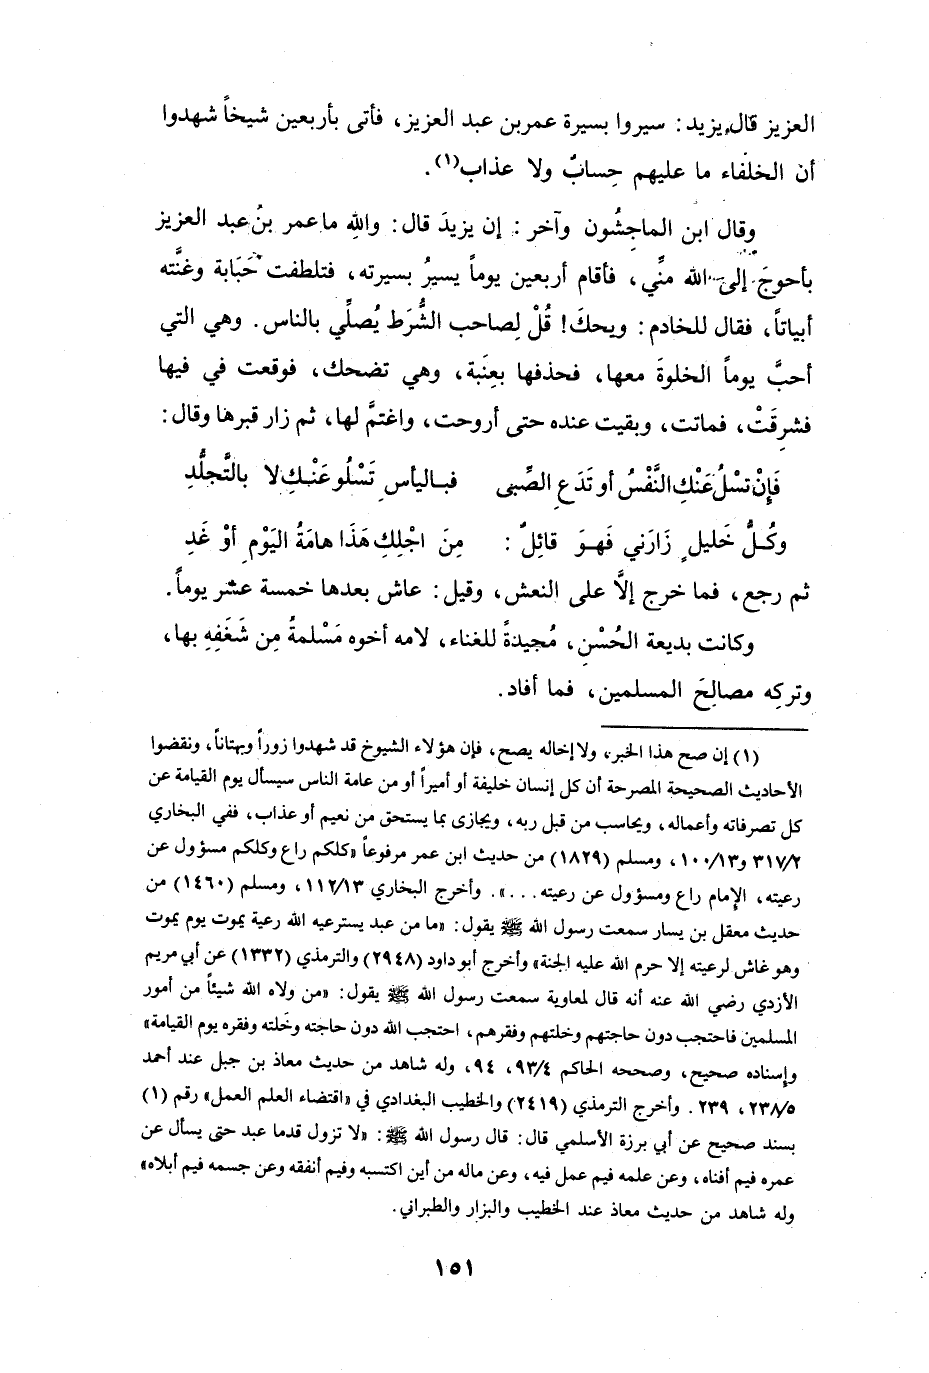 العزيز قال يزيد: سيروا بسيرة عمر بن عبد العزيز، فأتى بأربعين شيخاً شهدوا
أن الخلفاء ما عليهم حِسابٌ ولا عذاب(١).
وقال ابن الماجِشُون وآخر: إن يزيدَ قال: واللهِ ما عمر بنُ عبد العزيز
بأحوجَ إلى الله مِنِّي، فأقام أربعين يوماً يسيرُ بسيرته، فتلطفت حَبَابة وغنَّته
أبياتاً، فقال للخادم: ويحكَ! قُلْ لِصاحب الشُّرَط يُصلِّي بالناس. وهي التي
أحبَّ يوماً الخلوةَ معها، فحذفها بِعِنَبة، وهي تضحك، فوقعت في فيها
فشرِقَتْ، فماتت، وبقيت عنده حتى أروحت، واغتمَّ لها، ثم زار قبرها وقال:
فَإِنْ تسْلُ عَنْكِ النَّفْسُ أو تَدَعِ الصِّبى فبـاليأسِ تَسْلُو عَنْـكِ لا بالتَّجلُّدِ
وكُـلُّ خَليلٍ زَارَني فَهـوَ قائِلٌ: مِنَ اجْلِكِ هَذَا هامَةُ اليَوْمِ أوْ غَدِ
ثم رجع، فما خرج إلَّا على النعش، وقيل: عاش بعدها خمسة عشر يوماً.
وكانت بديعة الحُسْنِ، مُجيدةً للغناء، لامه أخوه مَسْلمةُ مِن شَغَفِهِ بها،
وتركِه مصالِحَ المسلمين، فما أفاد.
(١) إن صح هذا الخبر، ولا إخاله يصح، فإن هؤلاء الشيوخ قد شهدوا زوراً وبهتاناً، ونقضوا
الأحاديث الصحيحة المصرحة أن كل إنسان خليفة أو أميراً أو من عامة الناس سيسأل يوم القيامة عن
كل تصرفاته وأعماله، ويحاسب من قبل ربه، ويجازى بما يستحق من نعيم أو عذاب، ففي البخاري
٣١٧/٢ و١٠٠/١٣، ومسلم (١٨٢٩) من حديث ابن عمر مرفوعاً «كلكم راع وكلكم مسؤول عن
رعيته، الإمام راع ومسؤول عن رعيته...». وأخرج البخاري ١١٢/١٣، ومسلم (١٤٦٠) من
حديث معقل بن يسار سمعت رسول الله ﷺ يقول: «ما من عبد يسترعيه الله رعية يموت يوم يموت
وهو غاش لرعيته إلا حرم الله عليه الجنة» وأخرج أبو داود (٢٩٤٨) والترمذي (١٣٣٢) عن أبي مريم
الأزدي رضي الله عنه أنه قال لمعاوية سمعت رسول الله ﷺ يقول: «من ولاه الله شيئاً من أمور
المسلمين فاحتجب دون حاجتهم وخلتهم وفقرهم، احتجب الله دون حاجته وخَلته وفقره يوم القيامة»
وإسناده صحيح، وصححه الحاكم ٩٣/٤، ٩٤، وله شاهد من حديث معاذ بن جبل عند أحمد
٢٣٨/٥، ٢٣٩. وأخرج الترمذي (٢٤١٩) والخطيب البغدادي في «اقتضاء العلم العمل» رقم (١)
بسند صحيح عن أبي برزة الأسلمي قال: قال رسول الله ﷺ: «لا تزول قدما عبد حتى يسأل عن
عمره فيم أفناه، وعن علمه فيم عمل فيه، وعن ماله من أين اكتسبه وفيم أنفقه وعن جسمه فيم أبلاه»
وله شاهد من حديث معاذ عند الخطيب والبزار والطبراني.
١٥١